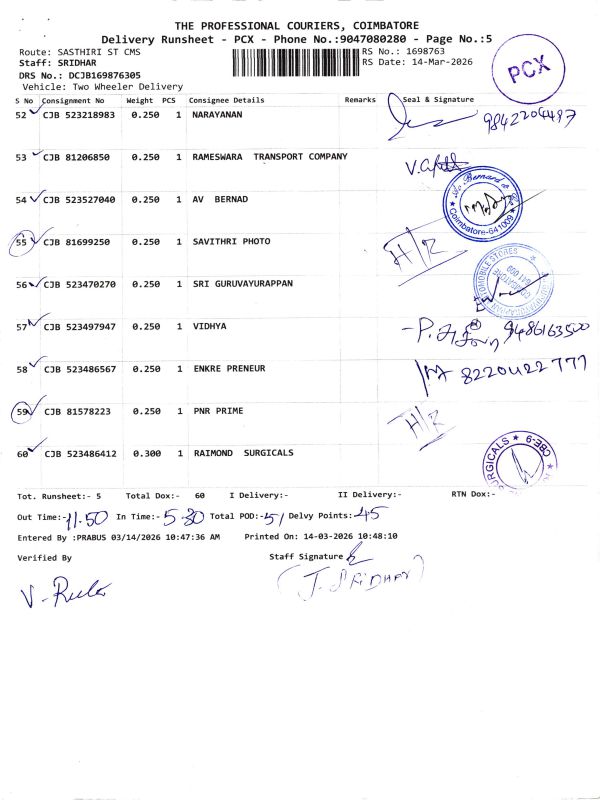 THE PROFESSIONAL COURIERS, COIMBATORE
Delivery Runsheet - PCX - Phone No.:9047080280 - Page No.:5
Route: SASTHIRI ST CMS
RS No.: 1698763
Staff: SRIDHAR
RS Date: 14-Mar-2026
DRS No.: DCJB169876305
Vehicle: Two Wheeler Delivery
PCX
S No Consignment No Weight PCS Consignee Details Remarks Seal & Signature
52 CJB 523218983 0.250 1 NARAYANAN 9842204497
53 CJB 81206850 0.250 1 RAMESWARA TRANSPORT COMPANY
54 CJB 523527040 0.250 1 AV BERNAD
Coimbatore-641009
55 CJB 81699250 0.250 1 SAVITHRI PHOTO H/R
56 CJB 523470270 0.250 1 SRI GURUVAYURAPPAN
AUTOMOBILE STORES
COIMBATORE
641 009
57 CJB 523497947 0.250 1 VIDHYA 9486163500
58 CJB 523486567 0.250 1 ENKRE PRENEUR 8220422777
59 CJB 81578223 0.250 1 PNR PRIME H/R
60 CJB 523486412 0.300 1 RAIMOND SURGICALS
SURGICALS ★ CBE-9 ★
Tot. Runsheet:- 5 Total Dox:- 60 I Delivery:- II Delivery:- RTN Dox:-
Out Time:- 11.50 In Time:- 5-30 Total POD:- 51 Delvy Points:- 45
Entered By :PRABUS 03/14/2026 10:47:36 AM Printed On: 14-03-2026 10:48:10
Verified By Staff Signature
(J. SRIDHAR)